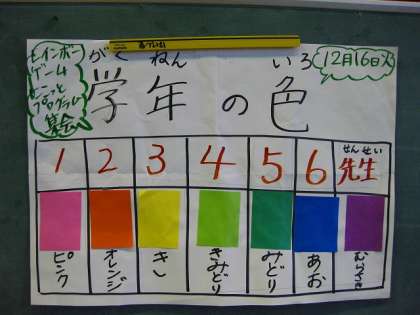 レインボー
ゲーム
プログラム
集会
12月16日火
がく ねん いろ
学年の色
1 2 3 4 5 6 先生
せんせい
ピンク オレンジ きい きみどり みどり あお むらさき